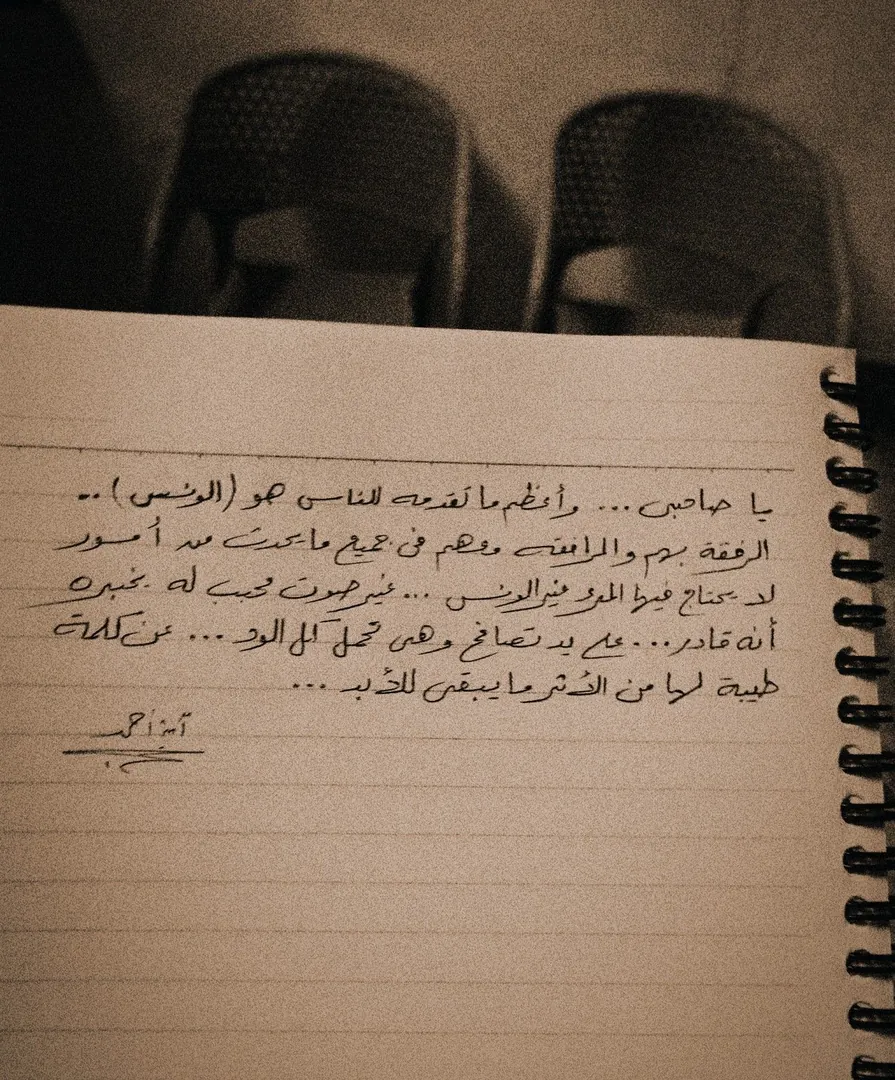 يا صاحبي ... وأعظم ما تقدمه للناس هو (الونس) ..
الرفقة بهم والمرافقة معهم في جميع ما يحدث من أمور
لا يحتاج فيها المرء غير الونس ... غير صوت محبب له يخبره
أنه قادر ... على يد تصافح وهي تحمل كل الود ... عن كلمة
طيبة لها من الأثر ما يبقى للأبد ...
آية أحمد